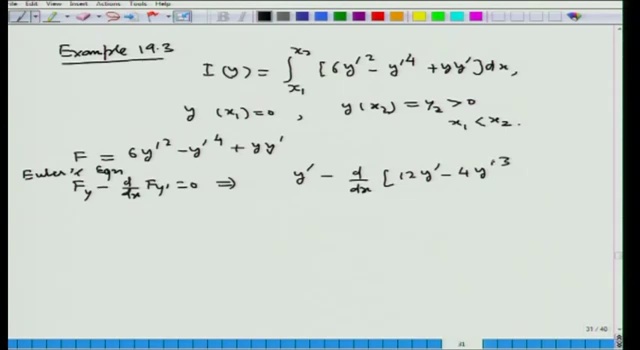 Edit View Insert Actions Tools Help
Example 19.3
I(y) = ∫_{x_1}^{x_2} [6y'^2 - y'^4 + yy'] dx,
y(x_1) = 0, y(x_2) = y_2 > 0
x_1 < x_2.
F = 6y'^2 - y'^4 + yy'
Euler's Eqn
F_y - d/dx F_y' = 0 ⇒ y' - d/dx [12y' - 4y'^3
31 / 40
31